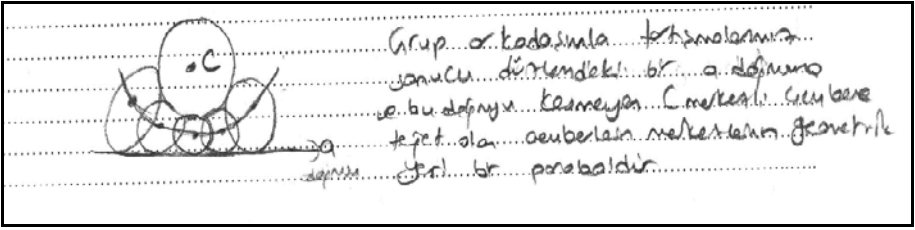 C
a
doğrusu
Grup arkadaşımla tartışmalarımız
sonucu düzlemdeki bir a doğruna
e bu doğruyu kesmeyen C merkezli çembere
teğet olan çemberlerin merkezlerinin geometrik
yeri bir paraboldür